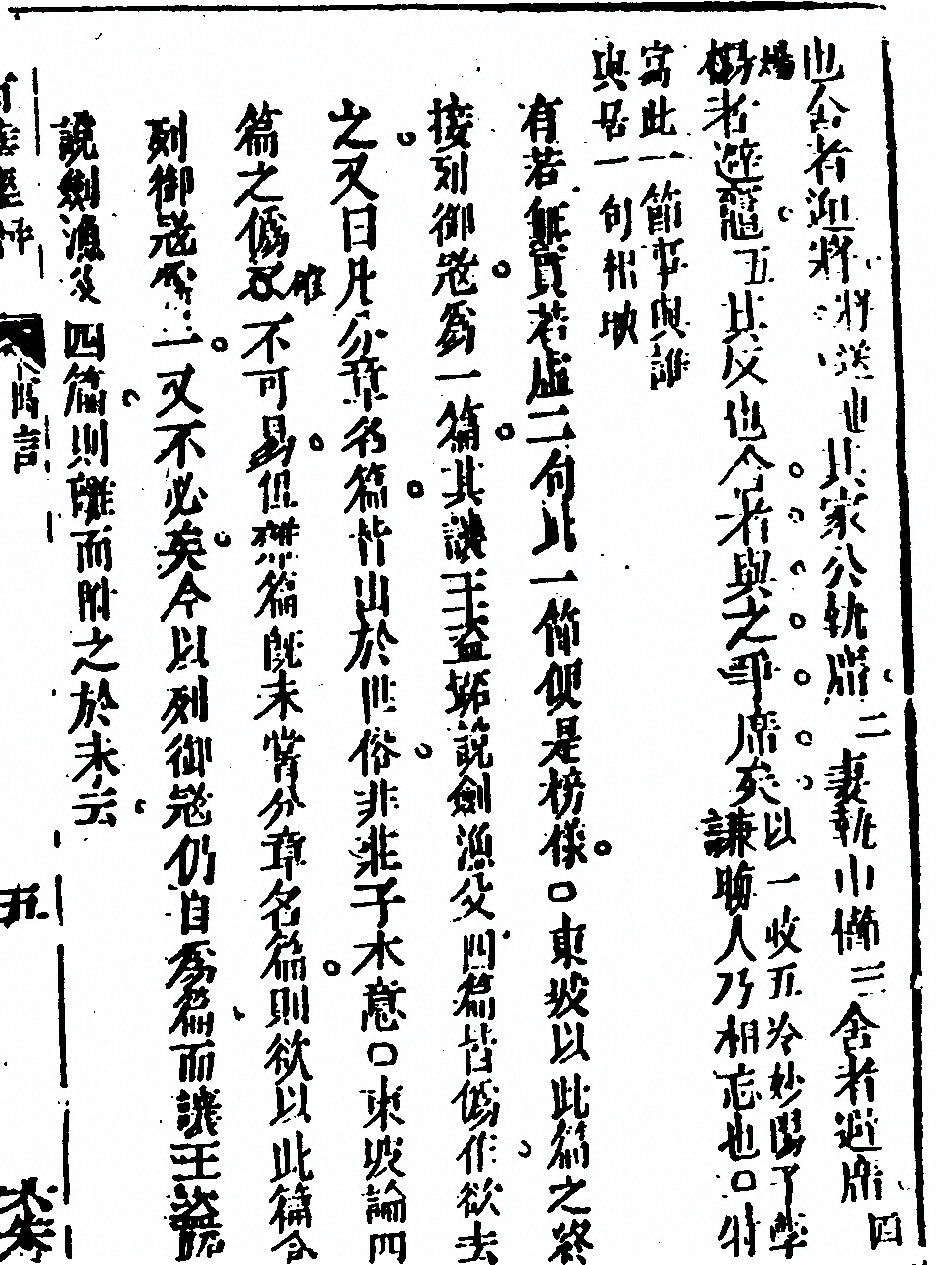 也舍者迎將將送也其家公執席二妻執巾櫛三舍者避席四
煬者避竈五其反也舍者與之爭席矣以一收五冷妙陽子學
謙晦人乃相忘也〇將
寓此一節事與誰
與居一句相映
有若無實若虛二句此一節便是榜樣〇東坡以此篇之終
接列御寇爲一篇其讓王盜跖說劍漁父四篇皆僞作欲去
之又曰凡分章名篇皆出於世俗非莊子本意〇東坡論四
篇之僞確不可易但雜篇旣未嘗分章名篇則欲以此篇合
列御寇爲一又不必矣今以列御寇仍自爲篇而讓王盜跖
說劍漁父四篇則離而附之於末云
寓言
五